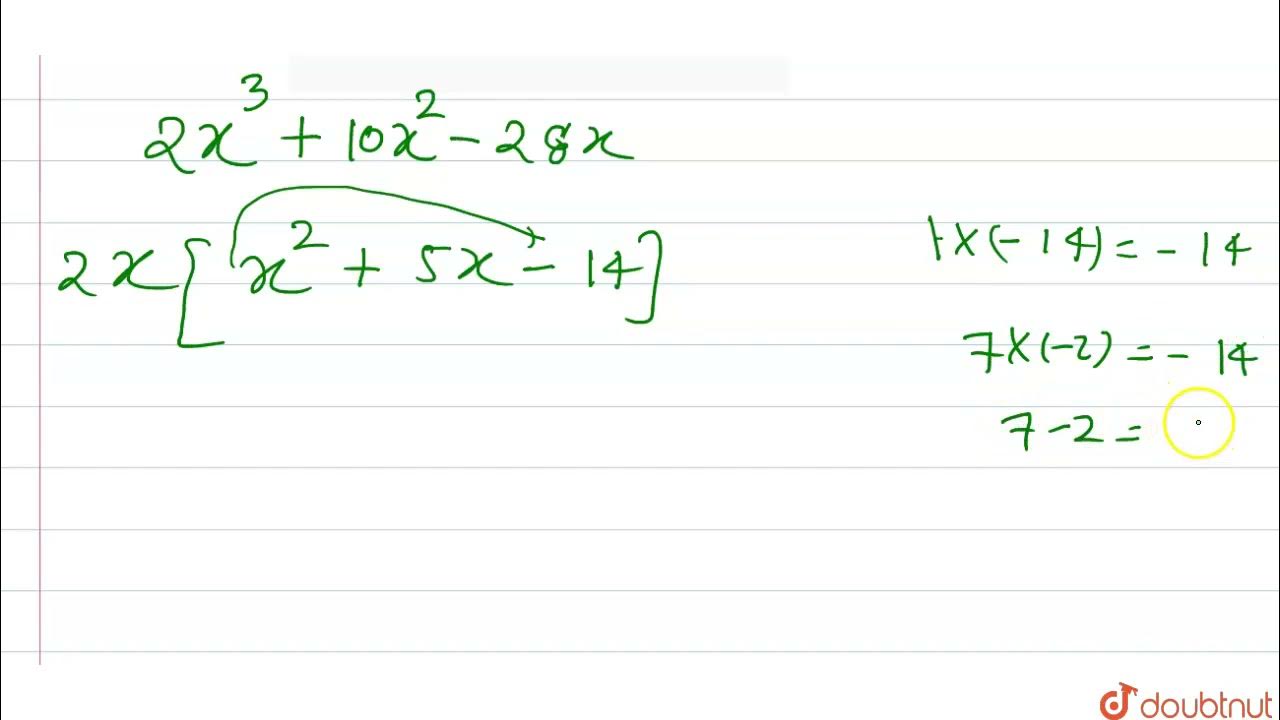 2x³ + 10x² - 28x
2x[x² + 5x - 14]
1×(-14) = -14
7×(-2) = -14
7-2=
doubtnut